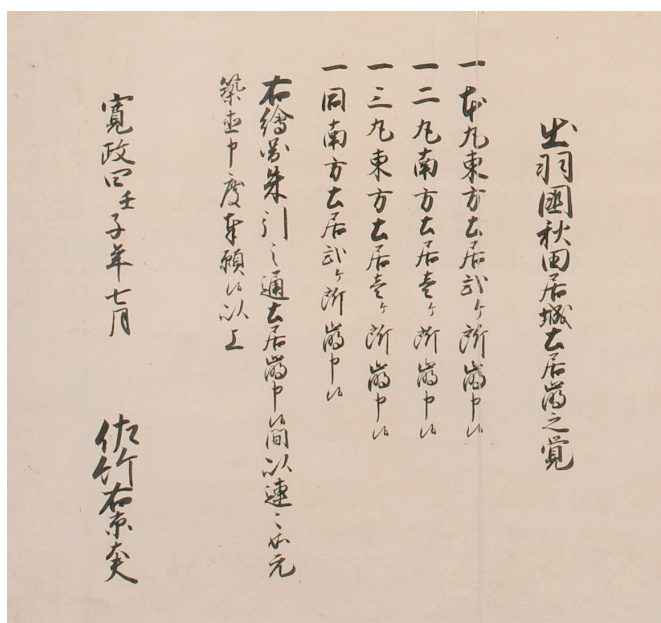 出羽國秋田居城土居崩之覚
一本丸東方土居弐ケ所崩申候
一二丸南方土居壱ケ所崩申候
一三丸東方土居壱ケ所崩申候
一同南方土居弐ケ所崩申候
右繪圖朱引之通土居崩申候間以連々如元
築直申度奉願候以上
寛政四壬子年七月
佐竹右京大夫